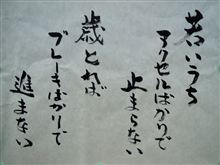 若いうち
アクセルばかりで
止まらない
歳とれば
ブレーキばかりで
進まない